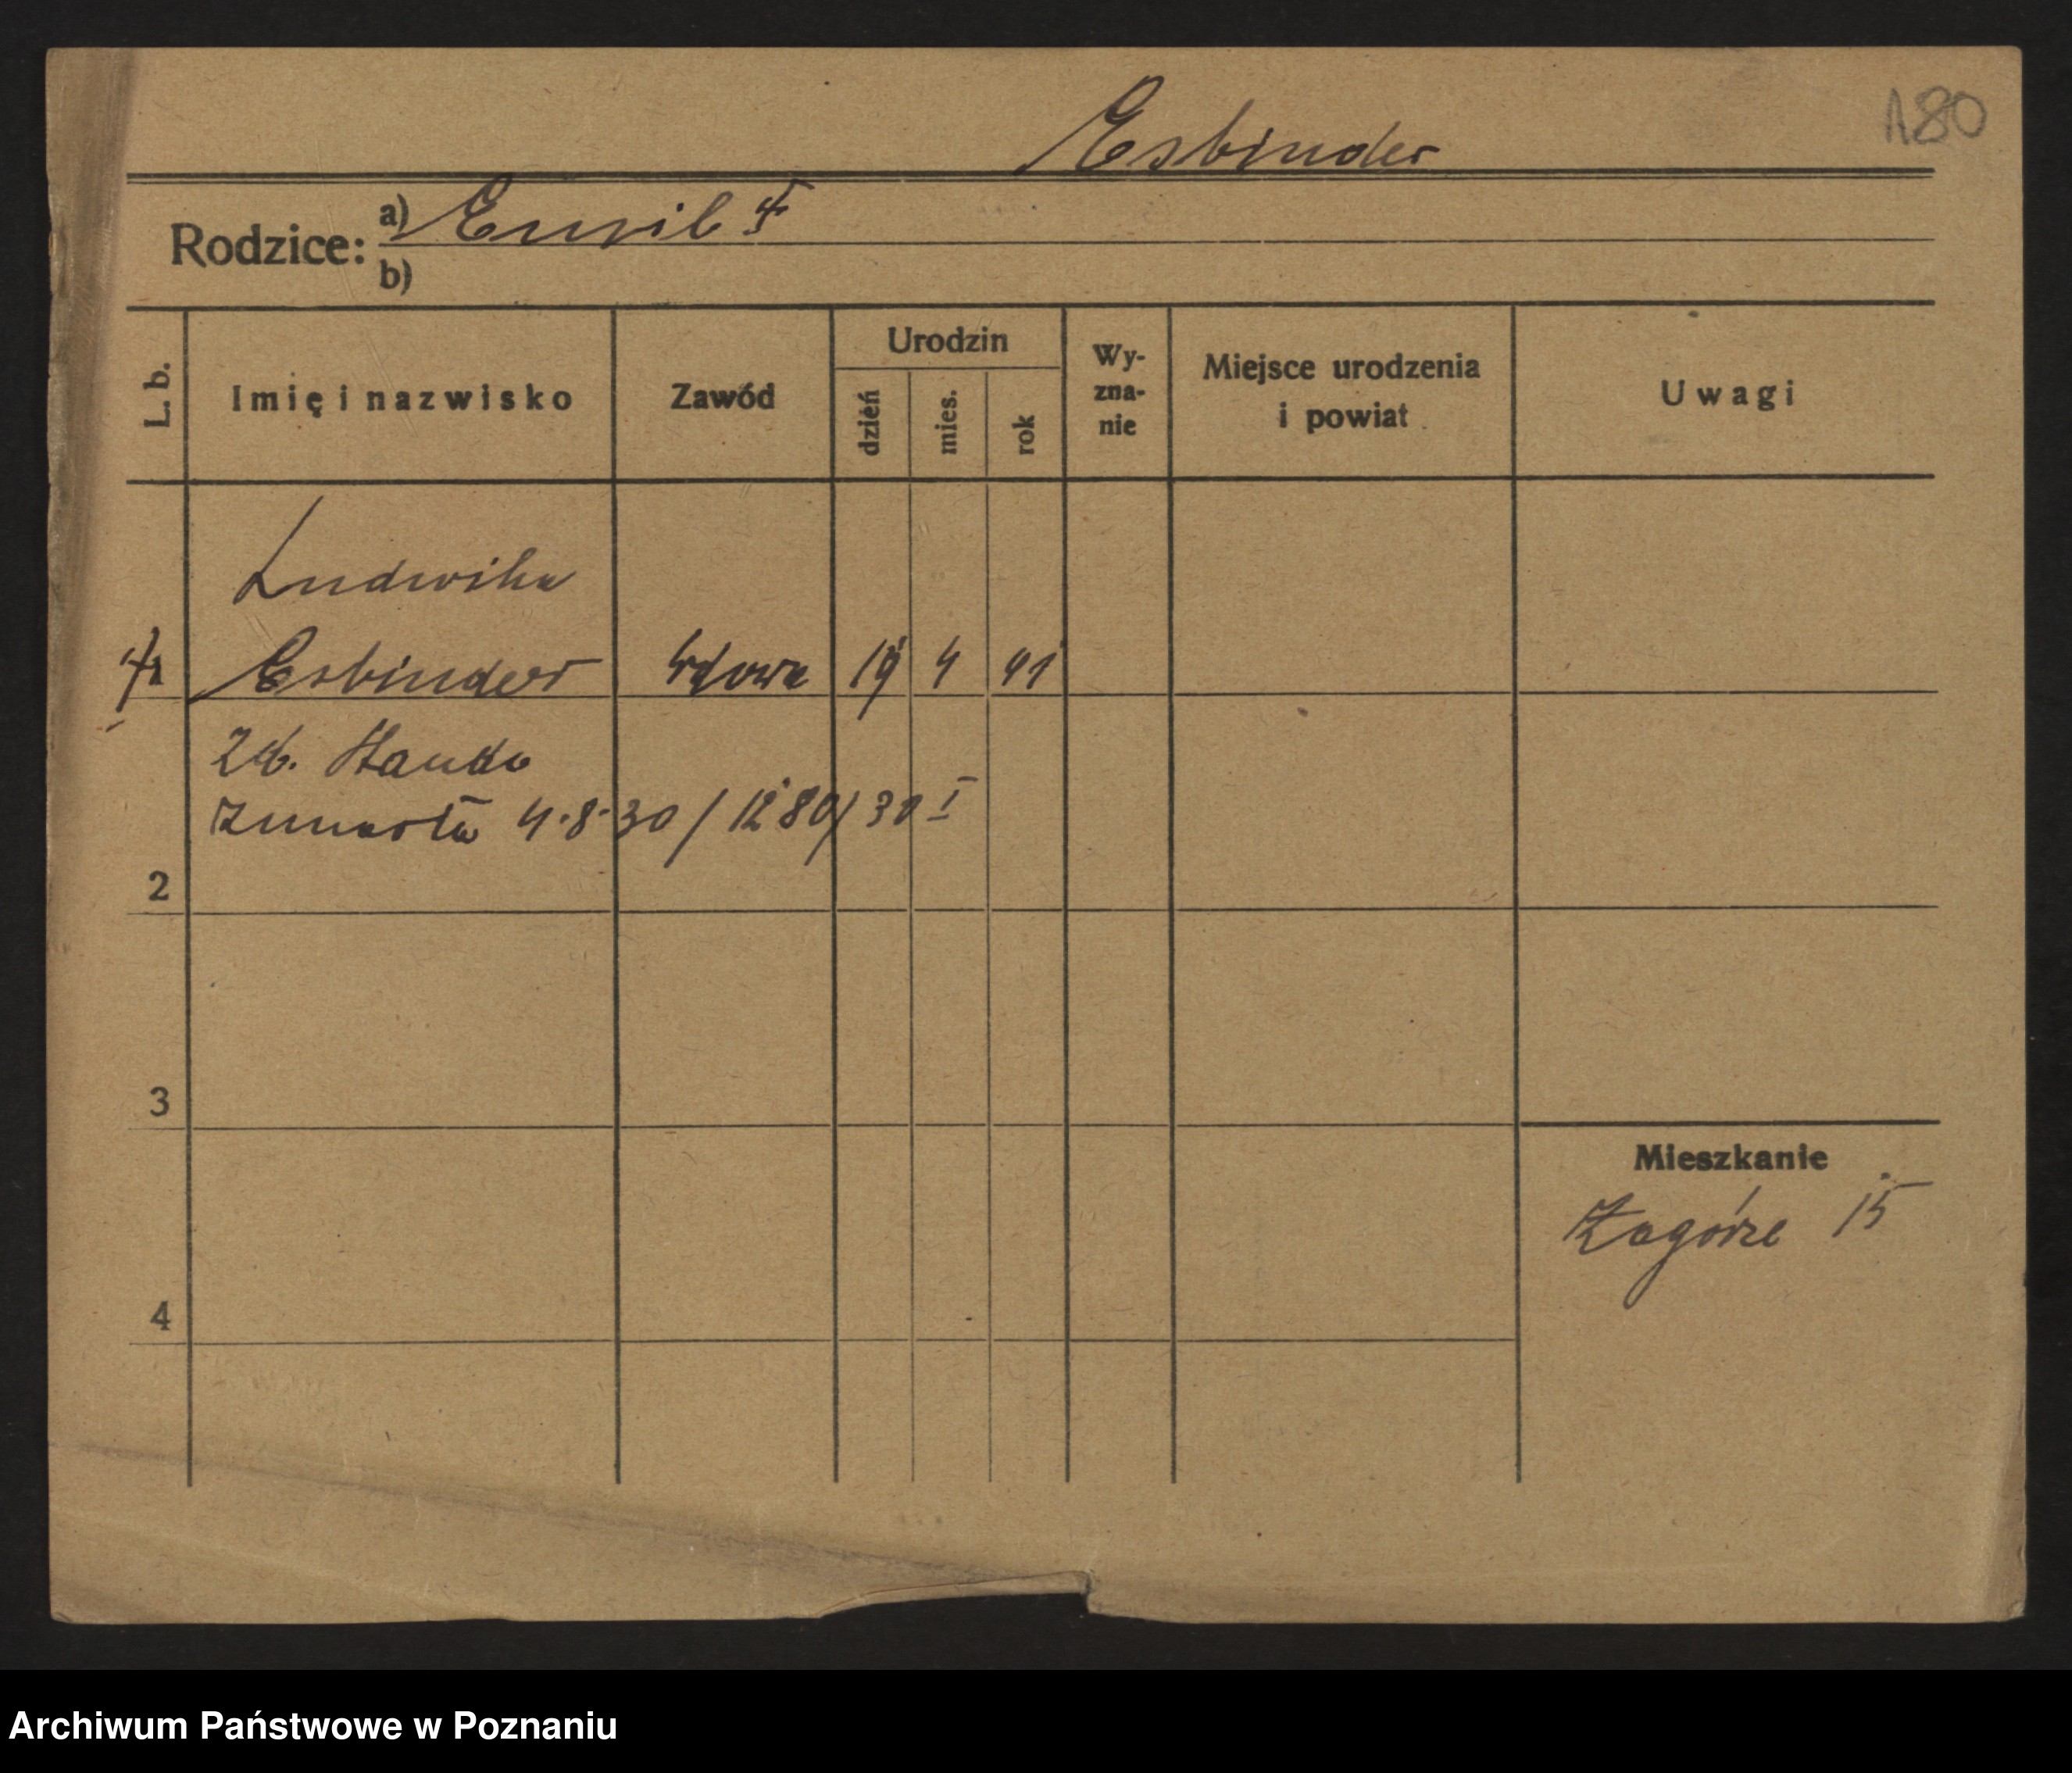 Esbinder
180
Rodzice: a) Emil †
b)
L. b.
Imię i nazwisko
Zawód
Urodzin
dzień
mies.
rok
Wy-
zna-
nie
Miejsce urodzenia
i powiat
Uwagi
Ludwika
1 Esbinder wdowa 19 4 41
Zmarła 4.8.30 / 1280/30 I
2
3
Mieszkanie
Zagórze 15
4
Archiwum Państwowe w Poznaniu